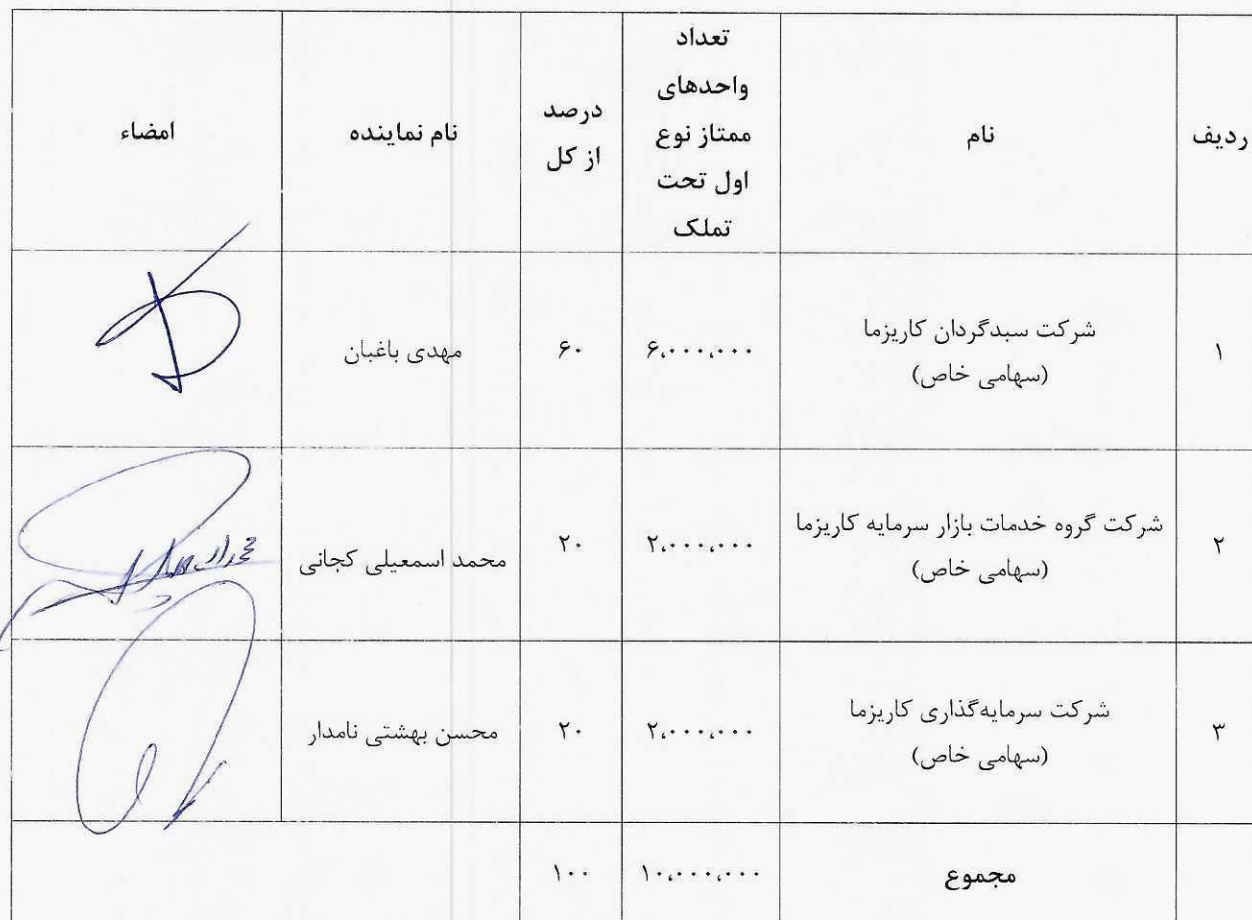 ردیف
نام
تعداد
واحدهای
ممتاز نوع
اول تحت
تملک
درصد
از کل
نام نماینده
امضاء
۱
شرکت سبدگردان کاریزما
(سهامی خاص)
۶,۰۰۰,۰۰۰
۶۰
مهدی باغبان
۲
شرکت گروه خدمات بازار سرمایه کاریزما
(سهامی خاص)
۲,۰۰۰,۰۰۰
۲۰
محمد اسمعیلی کجانی
۳
شرکت سرمایه‌گذاری کاریزما
(سهامی خاص)
۲,۰۰۰,۰۰۰
۲۰
محسن بهشتی نامدار
مجموع
۱۰,۰۰۰,۰۰۰
۱۰۰